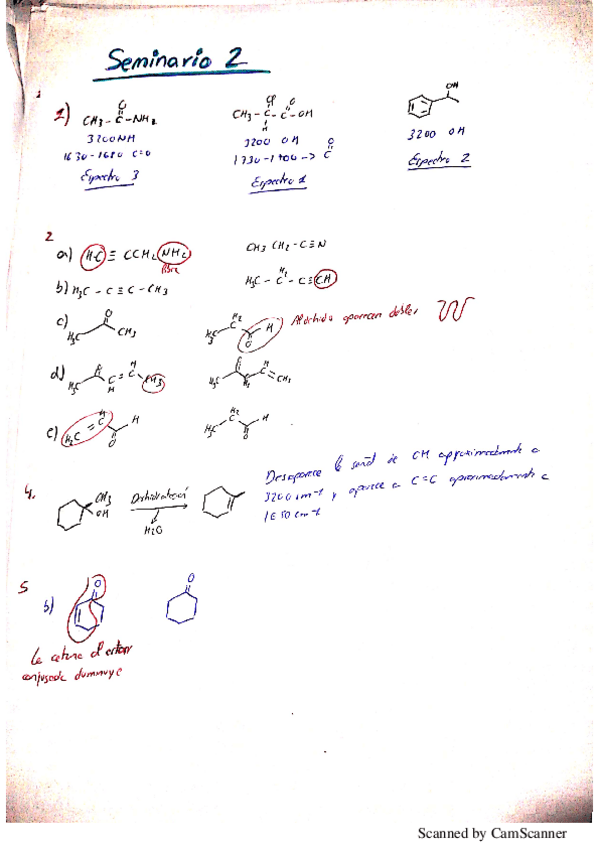 Seminario 2
1)
CH3 - C - NH2
O
3200 NH
1630-1680 C=O
Espectro 3
CH3 - C - C - OH
Cl
O
H
3200 OH
1730-1700 -> C
O
Espectro 1
OH
3200 OH
Espectro 2
2
a) HC ≡ CCH2 NH2
CH3 CH2 - C ≡ N
b) H3C - C ≡ C - CH3
H3C - C - C ≡ CH
H2
c) H3C
O
CH3
H3C
H2
C
H
O
Aldehido aparecen dobles
d) H3C
C = C
H
H
CH3
H3C
C = CH3
H
e) H2C = C
H
H
O
H3C
H2
C
H
O
4.
CH3
OH
Dshidratación
H2O
Desaparece la señal de OH approximadamente a
3200 cm-1 y aparece a C=C aproximadamente a
1650 cm-1
5
b)
O
O
La cetona al estar
conjugada disminuye
Scanned by CamScanner